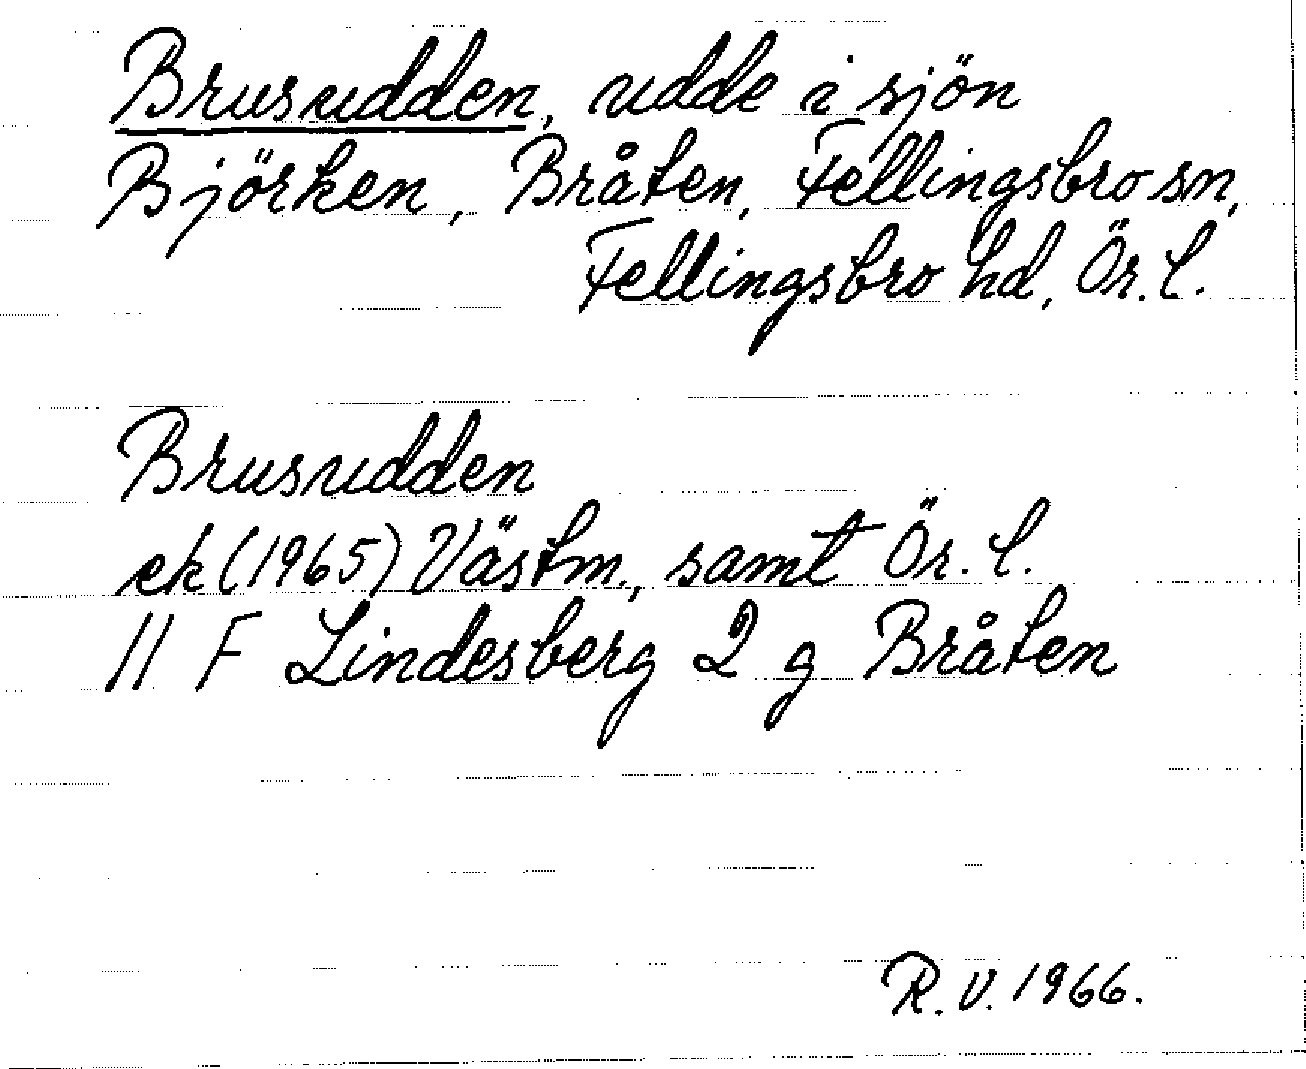 Brusudden, udde i sjön
Björken, Bråten, Fellingsbro sn,
Fellingsbro hd, Ör. l.
Brusudden
ek (1965) Västm., samt Ör. l.
11 F Lindesberg 2 g Bråten
R. V. 1966.